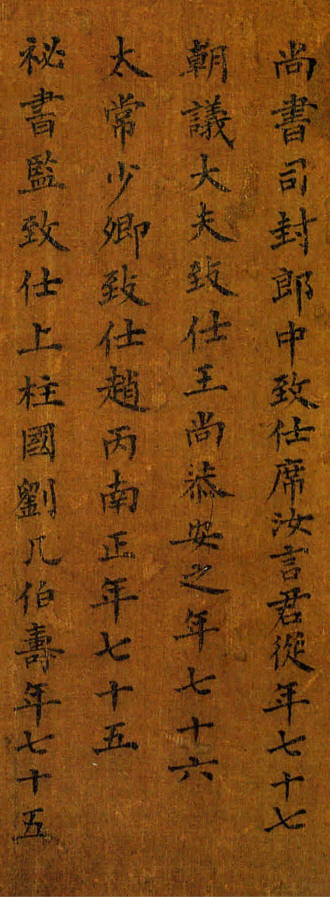 尚書司封郎中致仕席汝言君從年七十七
朝議大夫致仕王尚恭安之年七十六
太常少卿致仕趙丙南正年七十五
祕書監致仕上柱國劉几伯壽年七十五